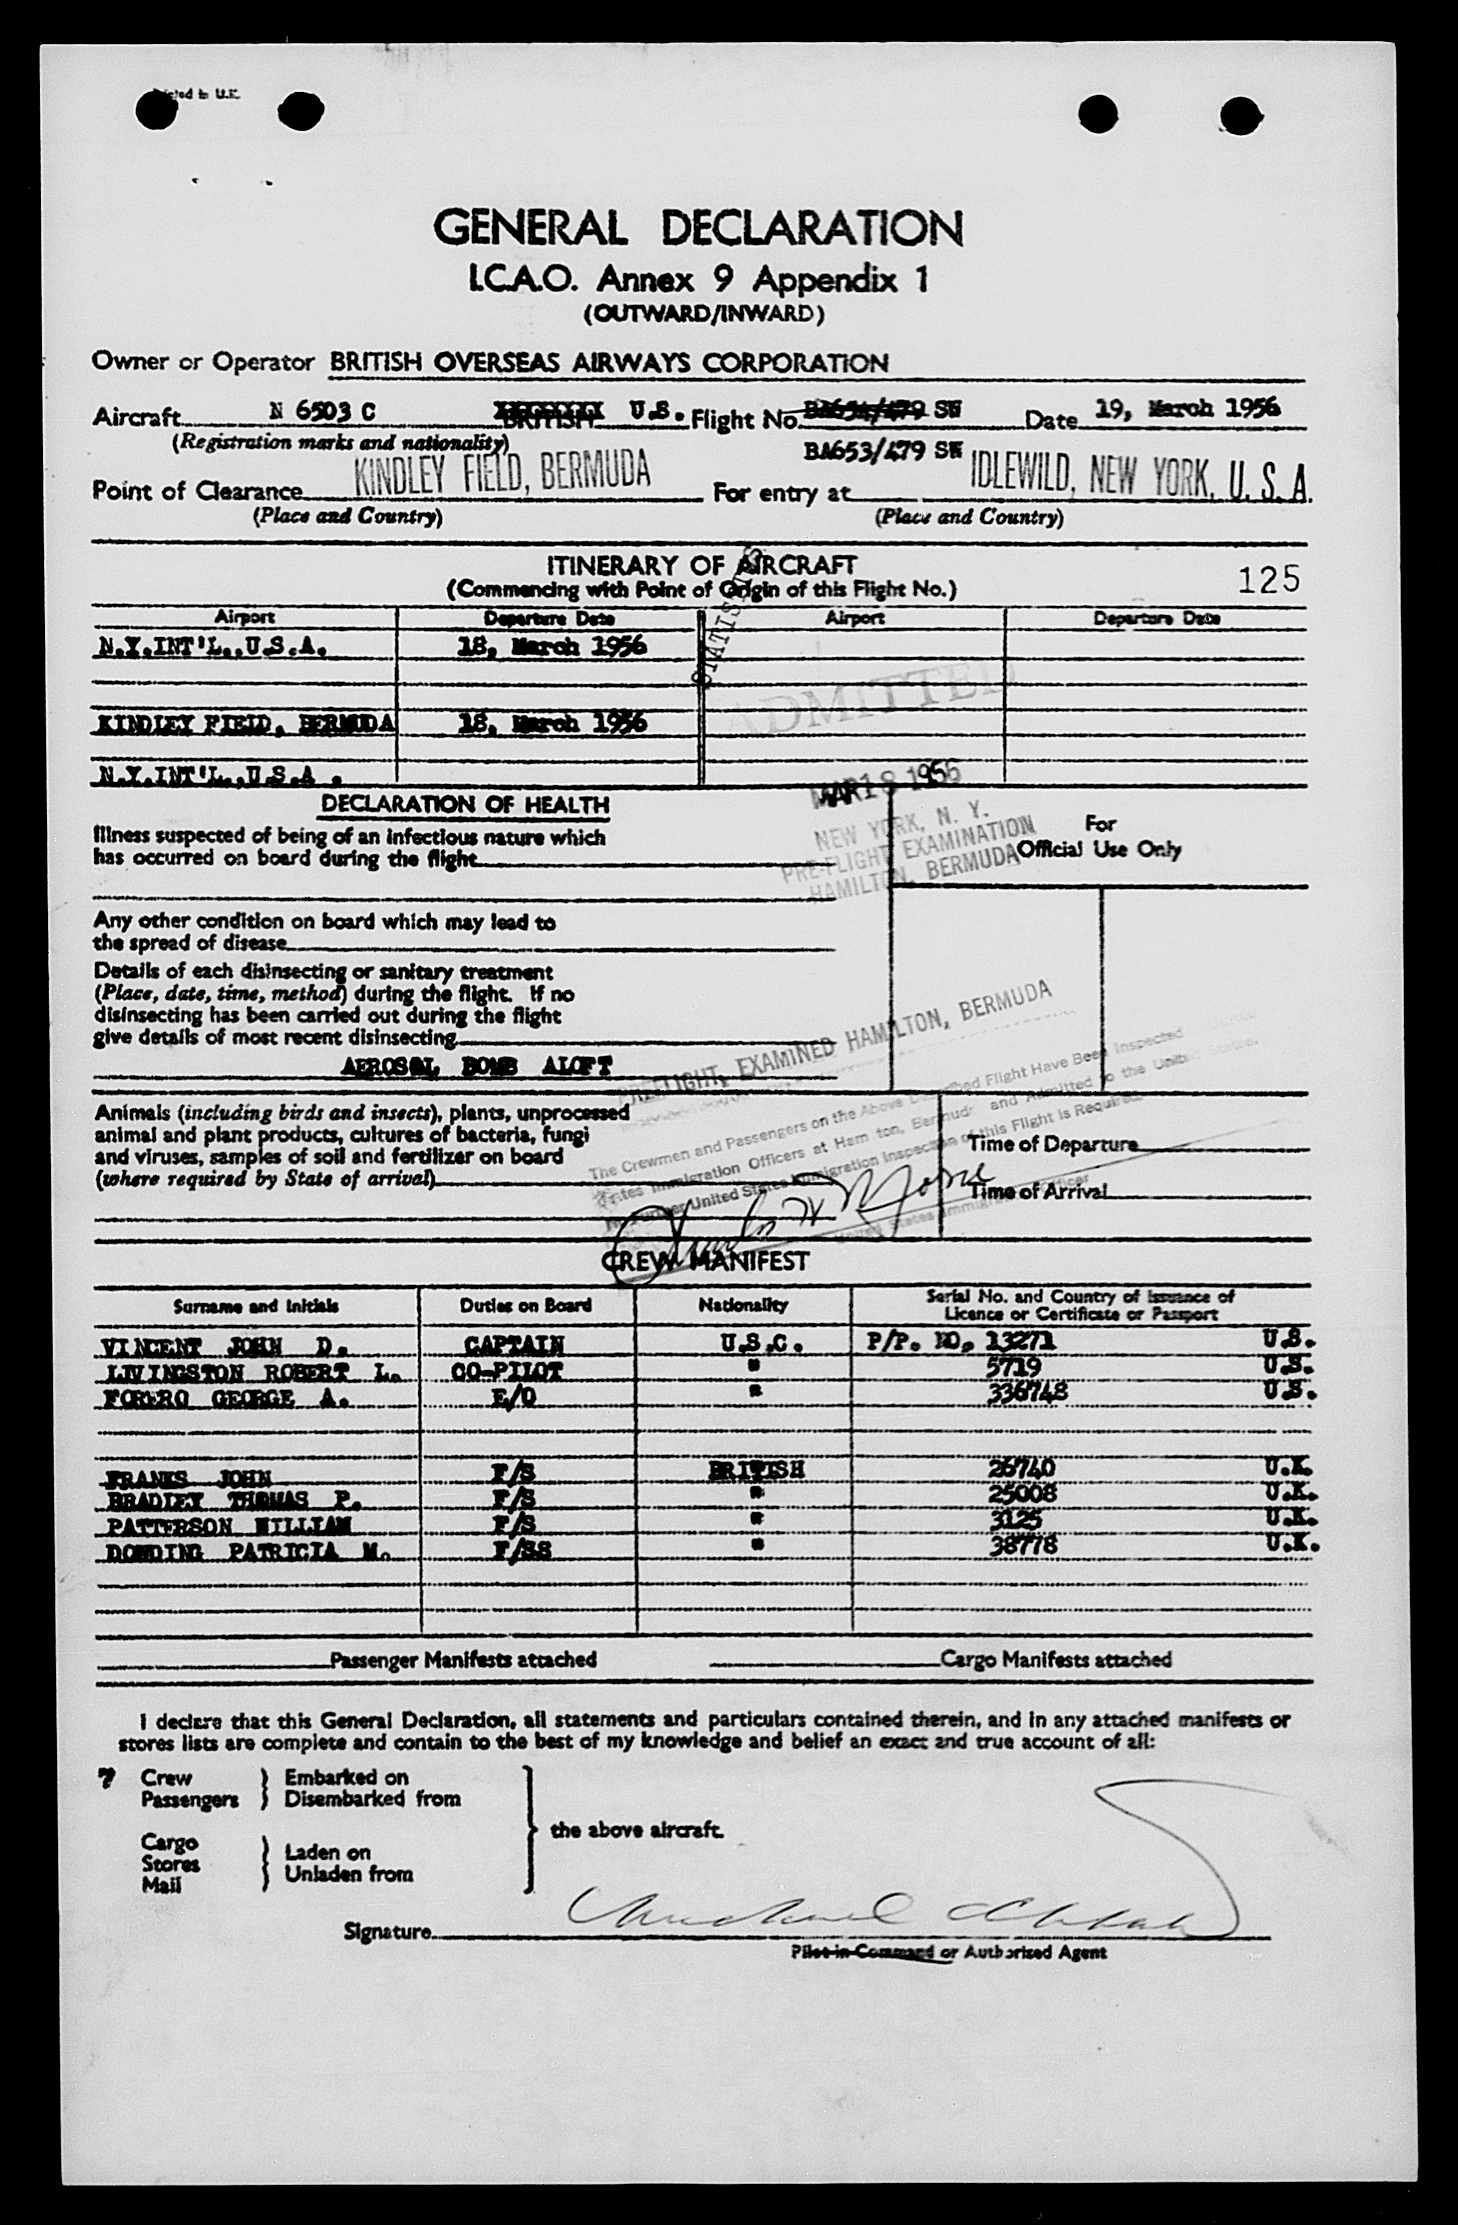 Printed in U.K.
GENERAL DECLARATION
I.C.A.O. Annex 9 Appendix 1
(OUTWARD/INWARD)
Owner or Operator BRITISH OVERSEAS AIRWAYS CORPORATION
Aircraft N 6503 C BRITISH U.S. Flight No. BA654/479 SN Date 19, March 1956
(Registration marks and nationality) BA653/479 SN
Point of Clearance KINDLEY FIELD, BERMUDA For entry at IDLEWILD, NEW YORK, U. S. A.
(Place and Country) (Place and Country)
ITINERARY OF AIRCRAFT
(Commencing with Point of Origin of this Flight No.) 125
STATISTICS
Airport Departure Date Airport Departure Date
N.Y.INT'L.,U.S.A. 18, March 1956
ADMITTED
KINDLEY FIELD, BERMUDA 18, March 1956
N.Y.INT'L.,U.S.A.
MAR 18 1956
NEW YORK, N. Y.
PRE-FLIGHT EXAMINATION
HAMILTON, BERMUDA
DECLARATION OF HEALTH
Illness suspected of being of an infectious nature which
has occurred on board during the flight
For
Official Use Only
Any other condition on board which may lead to
the spread of disease
Details of each disinsecting or sanitary treatment
(Place, date, time, method) during the flight. If no
disinsecting has been carried out during the flight
give details of most recent disinsecting
AEROSOL BOMB ALOFT
PREFLIGHT, EXAMINED HAMILTON, BERMUDA
The Crewmen and Passengers on the Above Described Flight Have Been Inspected
States Immigration Officers at Hamilton, Bermuda and Admitted to the United States.
No Further United States Immigration Inspection of this Flight is Required.
United States Immigration Officer
Animals (including birds and insects), plants, unprocessed
animal and plant products, cultures of bacteria, fungi
and viruses, samples of soil and fertilizer on board
(where required by State of arrival)
Time of Departure
Time of Arrival
CREW MANIFEST
Surname and Initials Duties on Board Nationality Serial No. and Country of Issuance of
Licence or Certificate or Passport
VINCENT JOHN D. CAPTAIN U.S.C. P/P. NO. 13271 U.S.
LIVINGSTON ROBERT L. CO-PILOT " 5719 U.S.
FORERO GEORGE A. E/O " 336748 U.S.
FRANKS JOHN F/S BRITISH 26740 U.K.
BRADLEY THOMAS P. F/S " 25008 U.K.
PATTERSON WILLIAM F/S " 3125 U.K.
DOWDING PATRICIA M. F/SS " 38778 U.K.
Passenger Manifests attached Cargo Manifests attached
I declare that this General Declaration, all statements and particulars contained therein, and in any attached manifests or
stores lists are complete and contain to the best of my knowledge and belief an exact and true account of all:
7 Crew } Embarked on
Passengers } Disembarked from
the above aircraft.
Cargo } Laden on
Stores
Mail } Unladen from
Signature
Pilot-in-Command or Authorised Agent